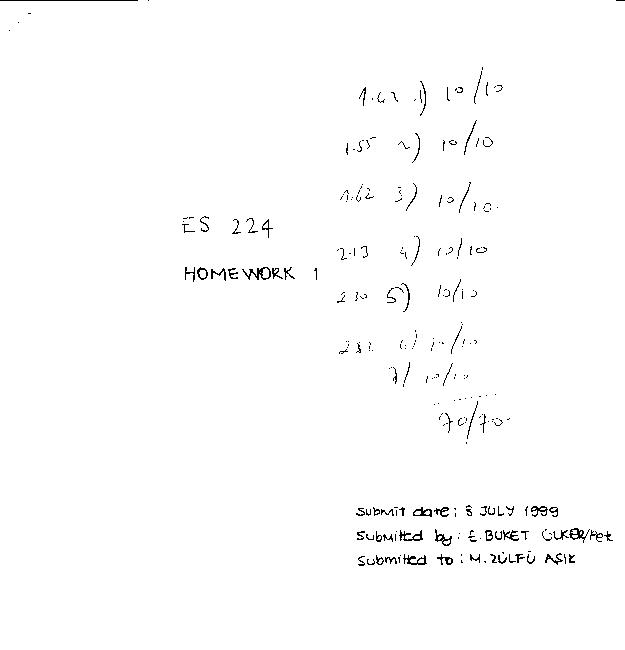 1.62 1) 10/10
1.55 2) 10/10
1.62 3) 10/10
ES 224
2.13 4) 10/10
HOMEWORK 1
2.30 5) 10/10
6) 10/10
7) 10/10
70/70
Submit date: 8 JULY 1999
Submitted by: E. BUKET ÜLKER/Pet
Submitted to: M. ZÜLFÜ AŞIK